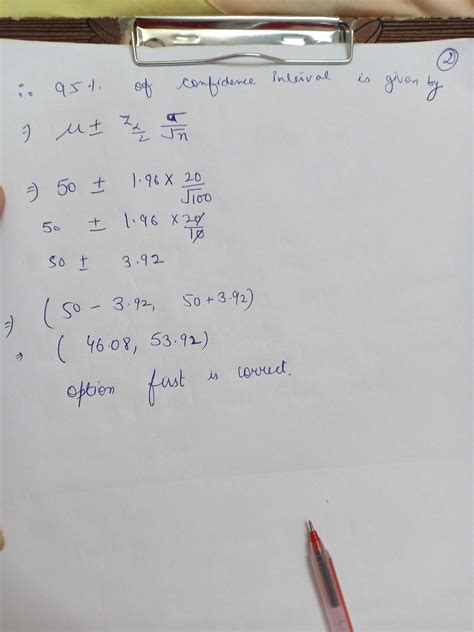 ②
∴ 95% of confidence interval is given by
⇒ μ ± z_{α/2} σ/√n
⇒ 50 ± 1.96 × 20/√100
50 ± 1.96 × 20/10
50 ± 3.92
⇒ (50 - 3.92, 50 + 3.92)
⇒ (46.08, 53.92)
option first is correct.